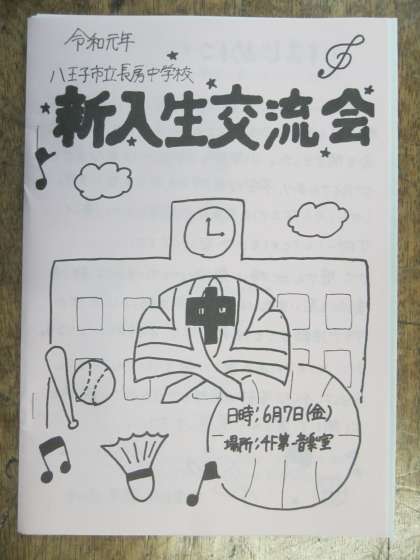 令和元年
八王子市立長房中学校
新入生交流会
中
日時:6月7日(金)
場所:4F第一音楽室